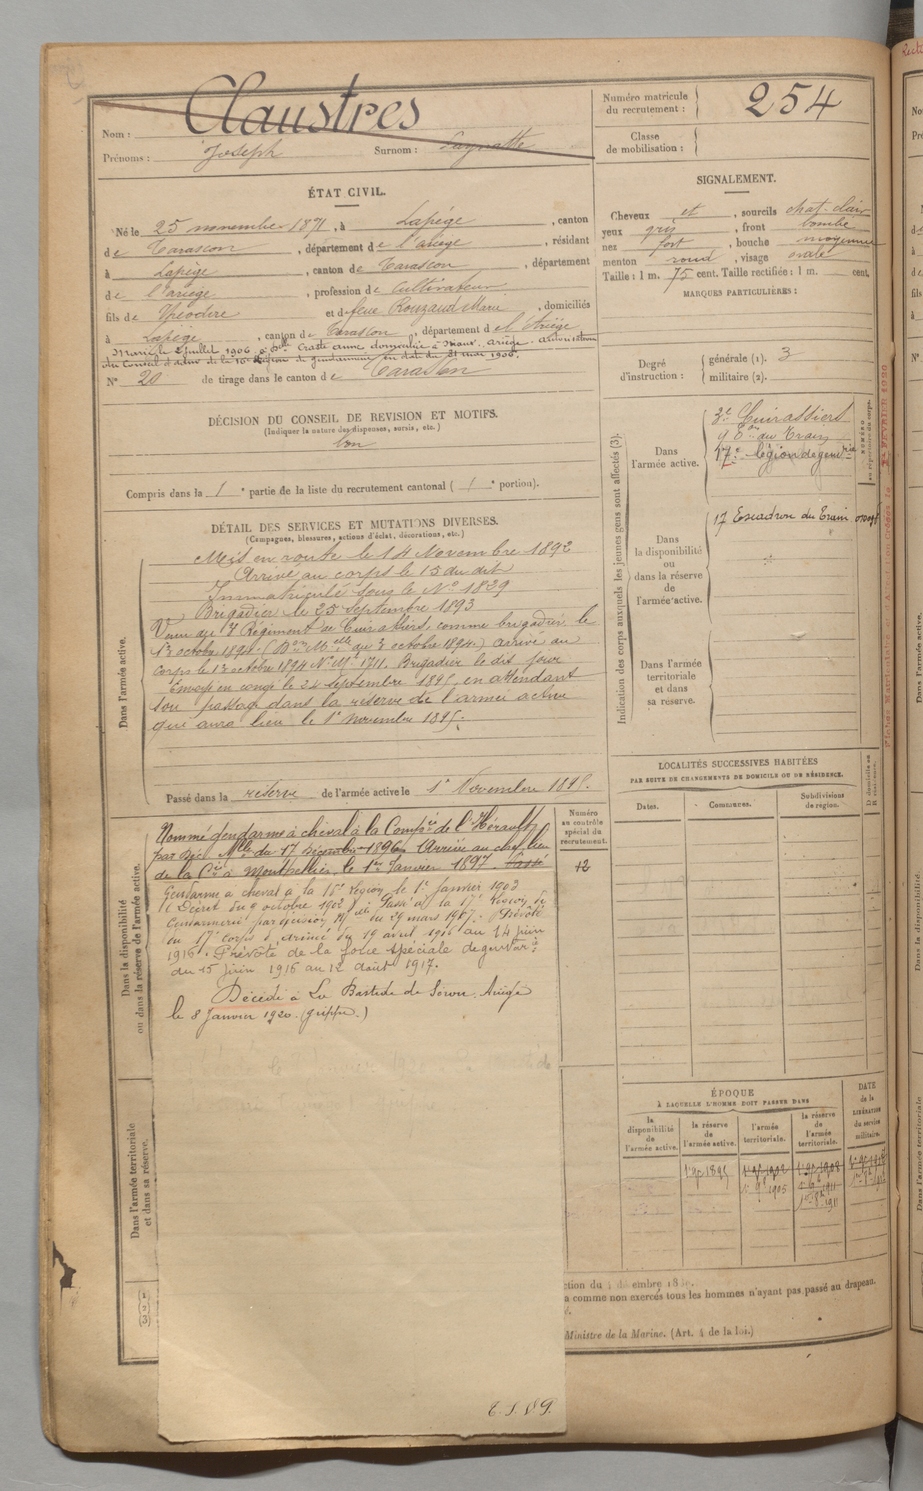 Nom : Claustres
Prénoms : Joseph Surnom :
Numéro matricule du recrutement : 254
Classe de mobilisation :
ÉTAT CIVIL.
Né le 25 novembre 1871, à Lapège, canton
de Tarascon, département de l'ariège, résidant
à Lapège, canton de Tarascon, département
de l'ariège, profession de Cultivateur
fils de Théodore et de feue Rouzaud Marie, domiciliés
à Lapège, canton de Tarascon, département de l'Ariège
Marié le 2 juillet 1906 à Dlle Craste Anne domiciliée à Ariège. Autorisation
du Conseil d'adm. de la légion de gendarmerie en date du 31 mai 1906.
N° 20 de tirage dans le canton de Tarascon
SIGNALEMENT.
Cheveux et , sourcils chat-clair
yeux gris , front bombé
nez fort , bouche moyenne
menton rond , visage ovale
Taille : 1 m. 75 cent. Taille rectifiée : 1 m. cent.
MARQUES PARTICULIÈRES :
Degré d'instruction :
générale (1). 3
militaire (2).
DÉCISION DU CONSEIL DE REVISION ET MOTIFS.
(Indiquer la nature des dispenses, sursis, etc.)
bon
Compris dans la 1e partie de la liste du recrutement cantonal ( 1e portion).
DÉTAIL DES SERVICES ET MUTATIONS DIVERSES.
(Campagnes, blessures, actions d'éclat, décorations, etc.)
Dans l'armée active.
Mis en route le 14 Novembre 1892
Arrivé au corps le 15 du dit
Immatriculé sous le N° 1829
Brigadier le 25 Septembre 1893
Venu du 7 Régiment de Cuirassiers comme brigadier le
12 octobre 1894. ( du 3 octobre 1894) arrivé au
corps le 12 octobre 1894 N° Mle 1711. Brigadier le dit jour
Envoyé en congé le 24 septembre 1895 en attendant
son passage dans la réserve de l'armée active
qui aura lieu le 1er novembre 1895.
Passé dans la réserve de l'armée active le 1er Novembre 1895.
Indication des corps auxquels les jeunes gens sont affectés (3).
Dans l'armée active.
3e Cuirassiers
9 Eon du Train
17e légion de gendrie
Dans la disponibilité ou dans la réserve de l'armée active.
17 Escadron du Train
Dans l'armée territoriale et dans sa réserve.
LOCALITÉS SUCCESSIVES HABITÉES
PAR SUITE DE CHANGEMENTS DE DOMICILE OU DE RÉSIDENCE.
Dates. Communes. Subdivisions de région.
Dans la disponibilité ou dans la réserve de l'armée active.
Numéro au contrôle spécial du recrutement.
12
Nommé gendarme à cheval à la Compie de l'Hérault
par Déc. Mlle du 17 Décembre 1896. Arrivé au chef lieu
de la Cie à Montpellier, le 1er Janvier 1897. Passé
Gendarme à cheval à la 16e légion le 1er Janvier 1903
(Décret du 9 octobre 1902). Passé à la 17e légion de
Gendarmerie par décision Mlle du 29 mars 1907. Prévôté
du 17e corps d'armée du 19 avril 1916 au 14 juin
1916. Prévôté de la force spéciale de gendarie
du 15 juin 1916 au 12 août 1917.
Décédé à La Bastide de Sérou, Ariège
le 8 Janvier 1920. (grippe.)
Dans l'armée territoriale et dans sa réserve.
ÉPOQUE
À LAQUELLE L'HOMME DOIT PASSER DANS
la disponibilité de l'armée active.
la réserve de l'armée active.
l'armée territoriale.
la réserve de l'armée territoriale.
DATE de la LIBÉRATION du service militaire.
1er 9bre 1895 1er 9bre 1902 1er 9bre 1908
1905 1911
1911
comme non exercés tous les hommes n'ayant pas passé au drapeau.
Ministre de la Marine. (Art. 4 de la loi.)